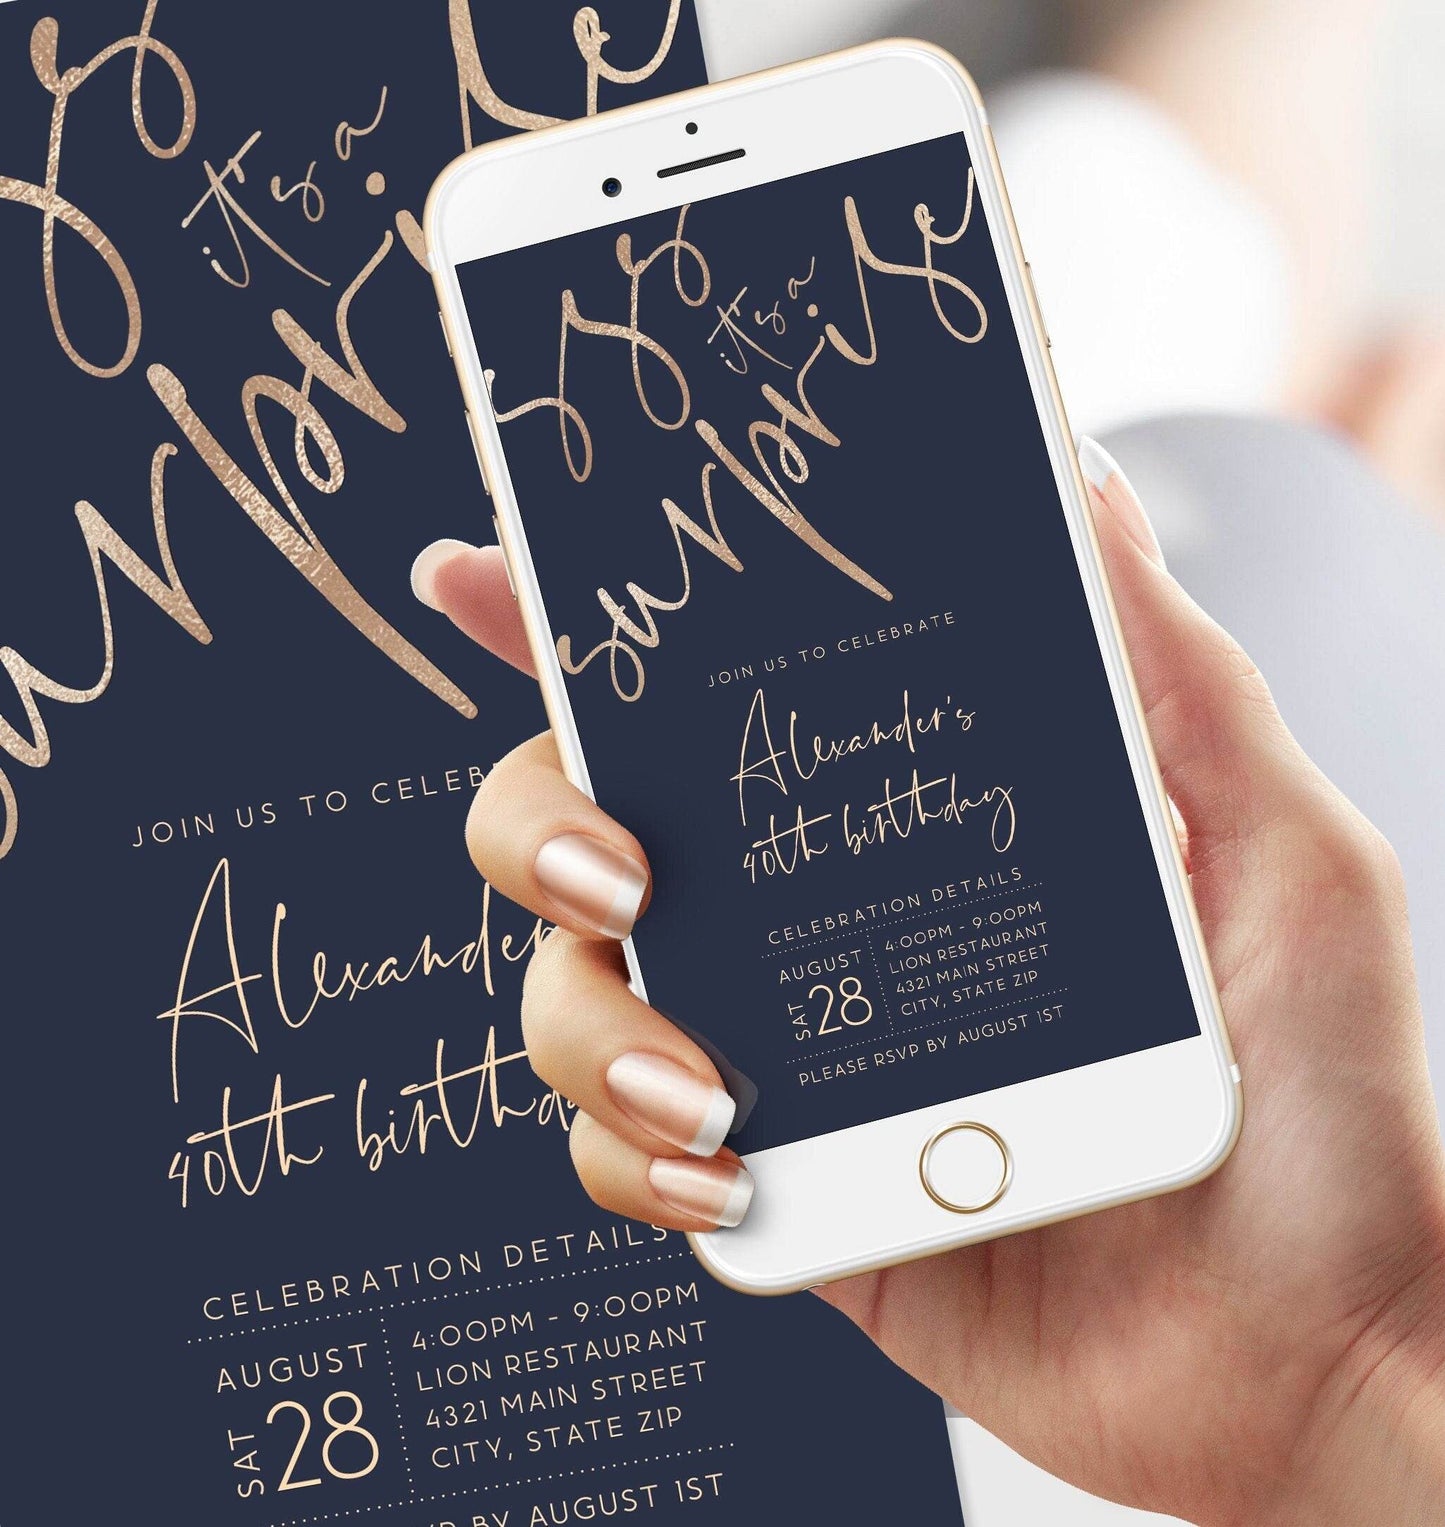 sss
it's a
surprise
JOIN US TO CELEB
Alexander
40th birthda
CELEBRATION DETAILS
AUGUST
SAT 28
4:00PM - 9:00PM
LION RESTAURANT
4321 MAIN STREET
CITY, STATE ZIP
BY AUGUST 1ST
sss
it's a
surprise
JOIN US TO CELEBRATE
Alexander's
40th birthday
CELEBRATION DETAILS
AUGUST
SAT 28
4:00PM - 9:00PM
LION RESTAURANT
4321 MAIN STREET
CITY, STATE ZIP
PLEASE RSVP BY AUGUST 1ST